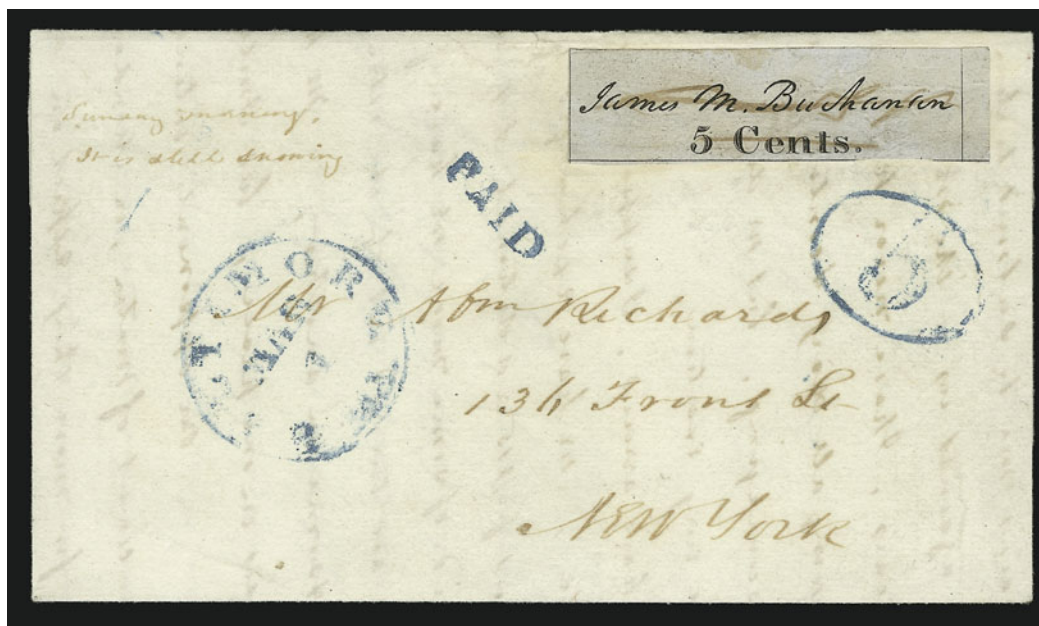 James M. Buchanan
5 Cents.
Sunday morning.
It is still snowing
PAID
5
BALTIMORE Md.
MAR
1
Mr Abm Richards
136 Front St
New York